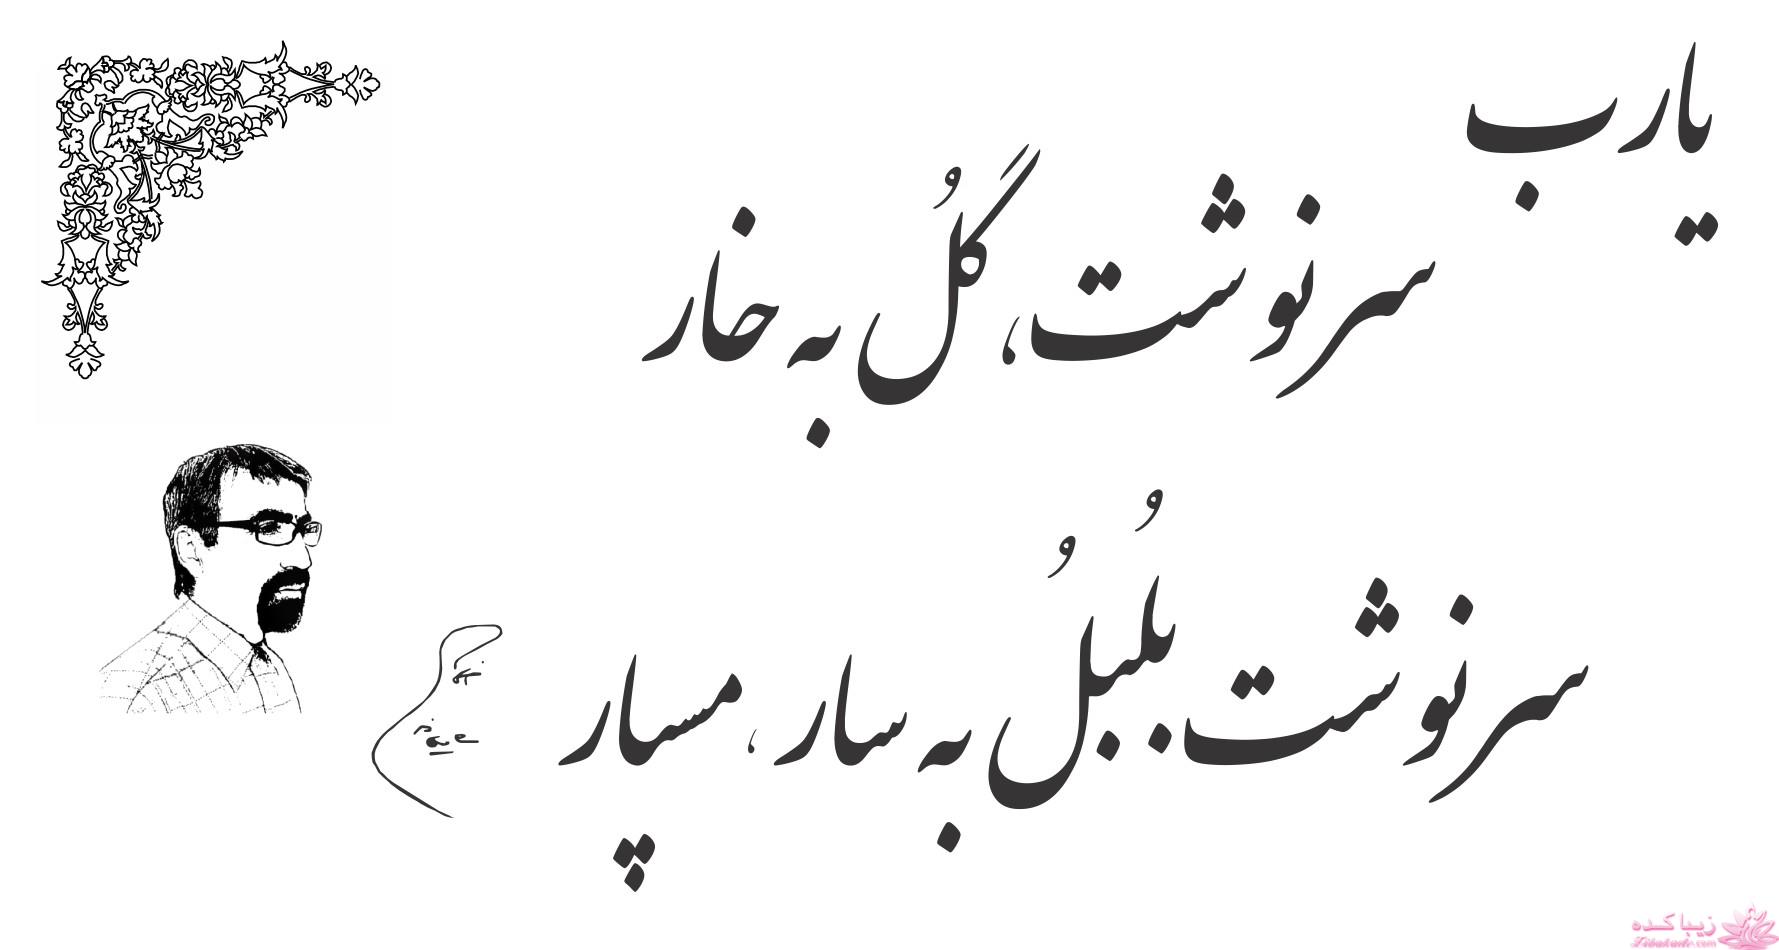 یارب
سرنوشت، گُل به خار
سرنوشت بُلبُل به سار ، مسپار
زیباکده
Zibakade.com